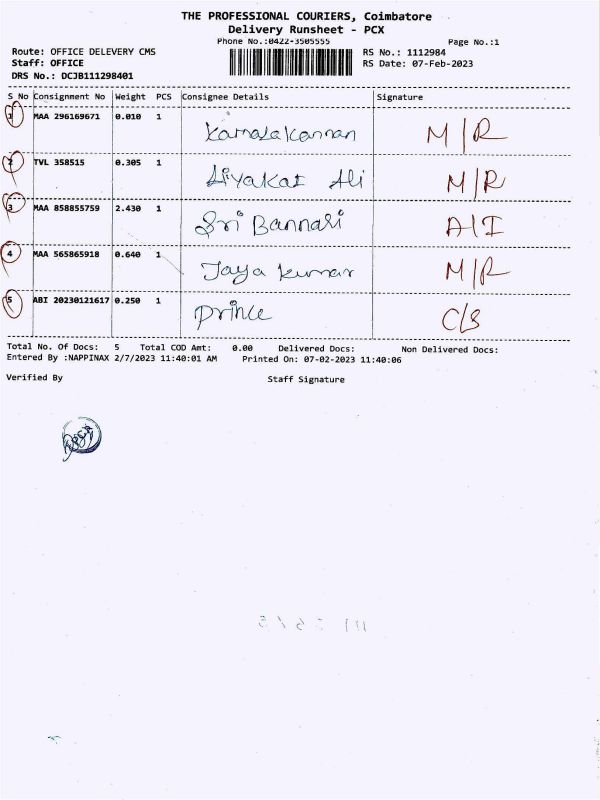 THE PROFESSIONAL COURIERS, Coimbatore
Delivery Runsheet - PCX
Phone No.:0422-3505555
Page No.:1
Route: OFFICE DELEVERY CMS
RS No.: 1112984
Staff: OFFICE
RS Date: 07-Feb-2023
DRS No.: DCJB111298401
S No Consignment No Weight PCS Consignee Details Signature
1 MAA 296169671 0.010 1 Kamalakannan M/R
2 TVL 358515 0.305 1 Liyakat Ali M/R
3 MAA 858855759 2.430 1 Sri Bannari A/I
4 MAA 565865918 0.640 1 Jaya Kumar M/R
5 ABI 20230121617 0.250 1 Prince C/S
Total No. Of Docs: 5 Total COD Amt: 0.00 Delivered Docs: Non Delivered Docs:
Entered By :NAPPINAX 2/7/2023 11:40:01 AM Printed On: 07-02-2023 11:40:06
Verified By Staff Signature